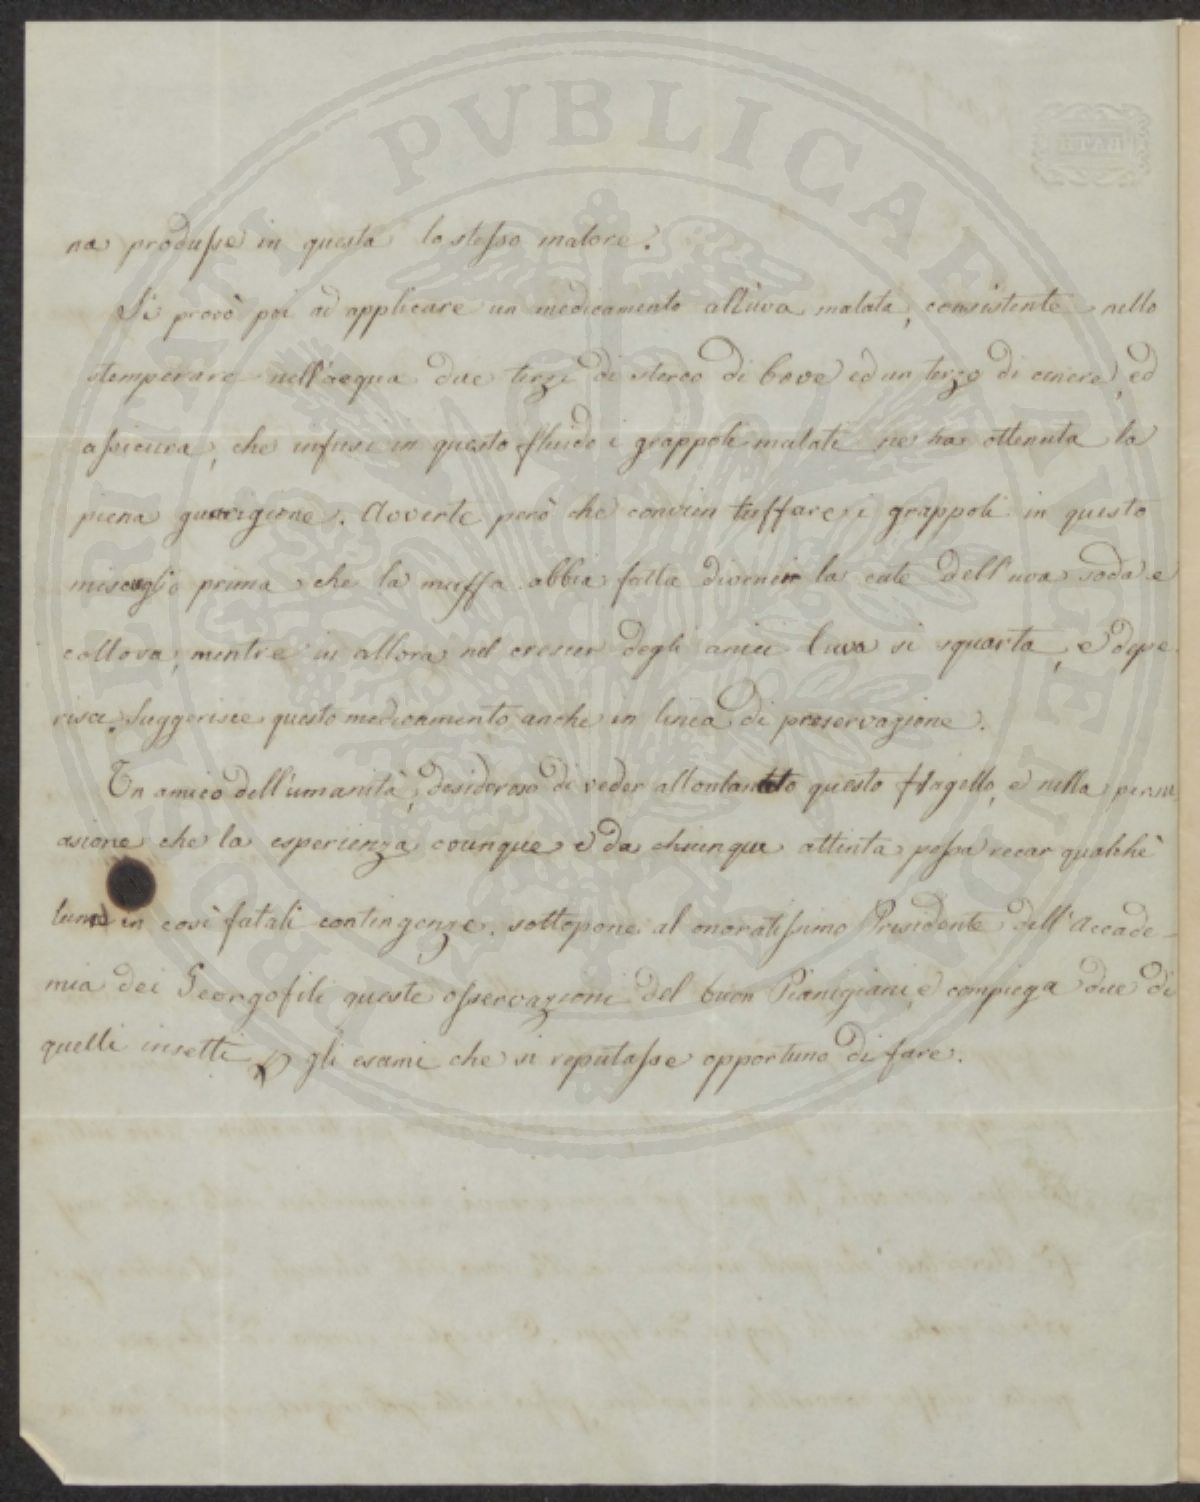 na produsse in questa lo stesso malore.
Si provò poi ad applicare un medicamento all'uva malata, consistente nello
stemperare nell'acqua due terzi di sterco di bove ed un terzo di cenere, ed
assicura, che infusi in questo fluido i grappoli malati ne ha ottenuta la
piena guarigione. Avverte però che convien tuffare i grappoli in questo
miscuglio prima che la muffa abbia fatta divenir la cute dell'uva soda e
collosa, mentre in allora nel crescer degli acini l'uva si squarta, e depe
risce. Suggerisce questo medicamento anche in linea di preservazione.
Un amico dell'umanità, desideroso di veder allontanato questo flagello, e nella persu
asione che la esperienza ovunque e da chiunque attinta possa recar qualche
lume in così fatali contingenze, sottopone al onoratissimo Presidente dell'Accade-
mia dei Georgofili queste osservazioni del buon Pianigiani, e compiega due di
quelli insetti p gli esami che si reputasse opportuno di fare.
PVBLICAE
BATH